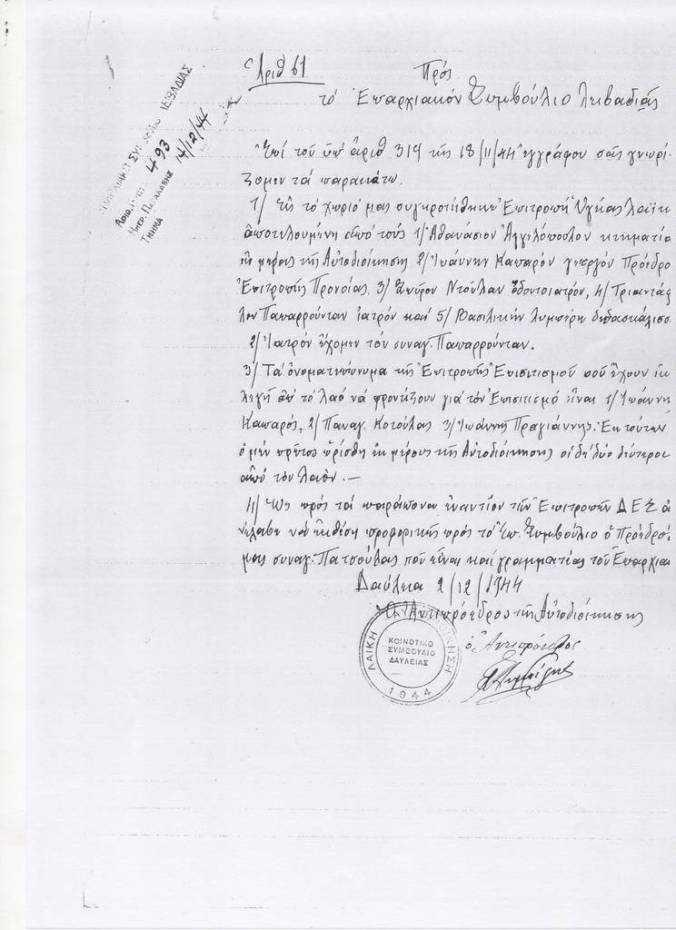 Ἀριθ 61
Πρός
τό Ἐπαρχιακόν Συμβούλιο Λεβαδιᾶς
ΕΠΑΡΧΙΑΚΟ ΛΕΒΑΔΙΑΣ
493
14/12/44
ΤΜΗΜΑ
Ἐπί τοῦ ὑπ' ἀριθ 319 τῆς 18/11/44 ἐγγράφου σᾶς γνωρί
ζομεν τά παρακάτω.
1/ Εἰς τό χωριό μας συγκροτήθηκε Ἐπιτροπή Ὑγείας
ἀποτελουμένη ἀπό τούς 1/ Ἀθανάσιον Ἀγγελόπουλον κτηματία
ἐκ μέρους τῆς Αὐτοδιοίκησης 2/ Ἰωάννην Καπαρόν γεωργόν Πρόεδρο
Ἐπιτροπῆς Προνοίας, 3/ Σπύρον Ντούλαν ὀδοντοιατρόν, 4/ Τριαντάφ
λον Παπαρρούνταν ἰατρόν καί 5/ Βασιλικήν Λυμπέρη διδασκάλισσ
2/ Ἰατρόν ἔχομεν τόν συναγ. Παπαρρούνταν.
3/ Τά ὀνοματεπώνυμα τῆς Ἐπιτροπῆς Ἐπισιτισμοῦ πού ἔχουν ἐκ
λεγῆ ἀπ τό λαό νά φροντίζουν γιά τόν Ἐπισιτισμό εἶναι 1/ Ἰωάννη
Καπαρός, 2/ Παναγ. Κοτούλας 3/ Ἰωάννης Προγιάννης. Ἐκ τούτων
ὁ μέν πρῶτος ὡρίσθη ἐκ μέρους τῆς Αὐτοδιοίκησης οἱ δέ δύο δεύτεροι
ἀπό τόν λαόν. —
4/ Ὡς πρός τά παράπονα ἐναντίον τῶν Ἐπιτροπῶν ΔΕΣ ἀ
νέλαβε νά ἐκθέση προφορικῶς πρός τό Ἐπ. Συμβούλιο ὁ Πρόεδρό
μας συναγ. Πατσούλας πού εἶναι καί γραμματέας τοῦ Ἐπαρχια
Δαύλεια 2/12/1944
Ὁ Ἀντιπρόεδρος τῆς Αὐτοδιοίκησης
ὁ Ἀντιπρόεδρος
ΛΑΪΚΗ ΑΥΤΟΔΙΟΙΚΗΣΗ
ΚΟΙΝΟΤΙΚΟ
ΣΥΜΒΟΥΛΙΟ
ΔΑΥΛΕΙΑΣ
1944